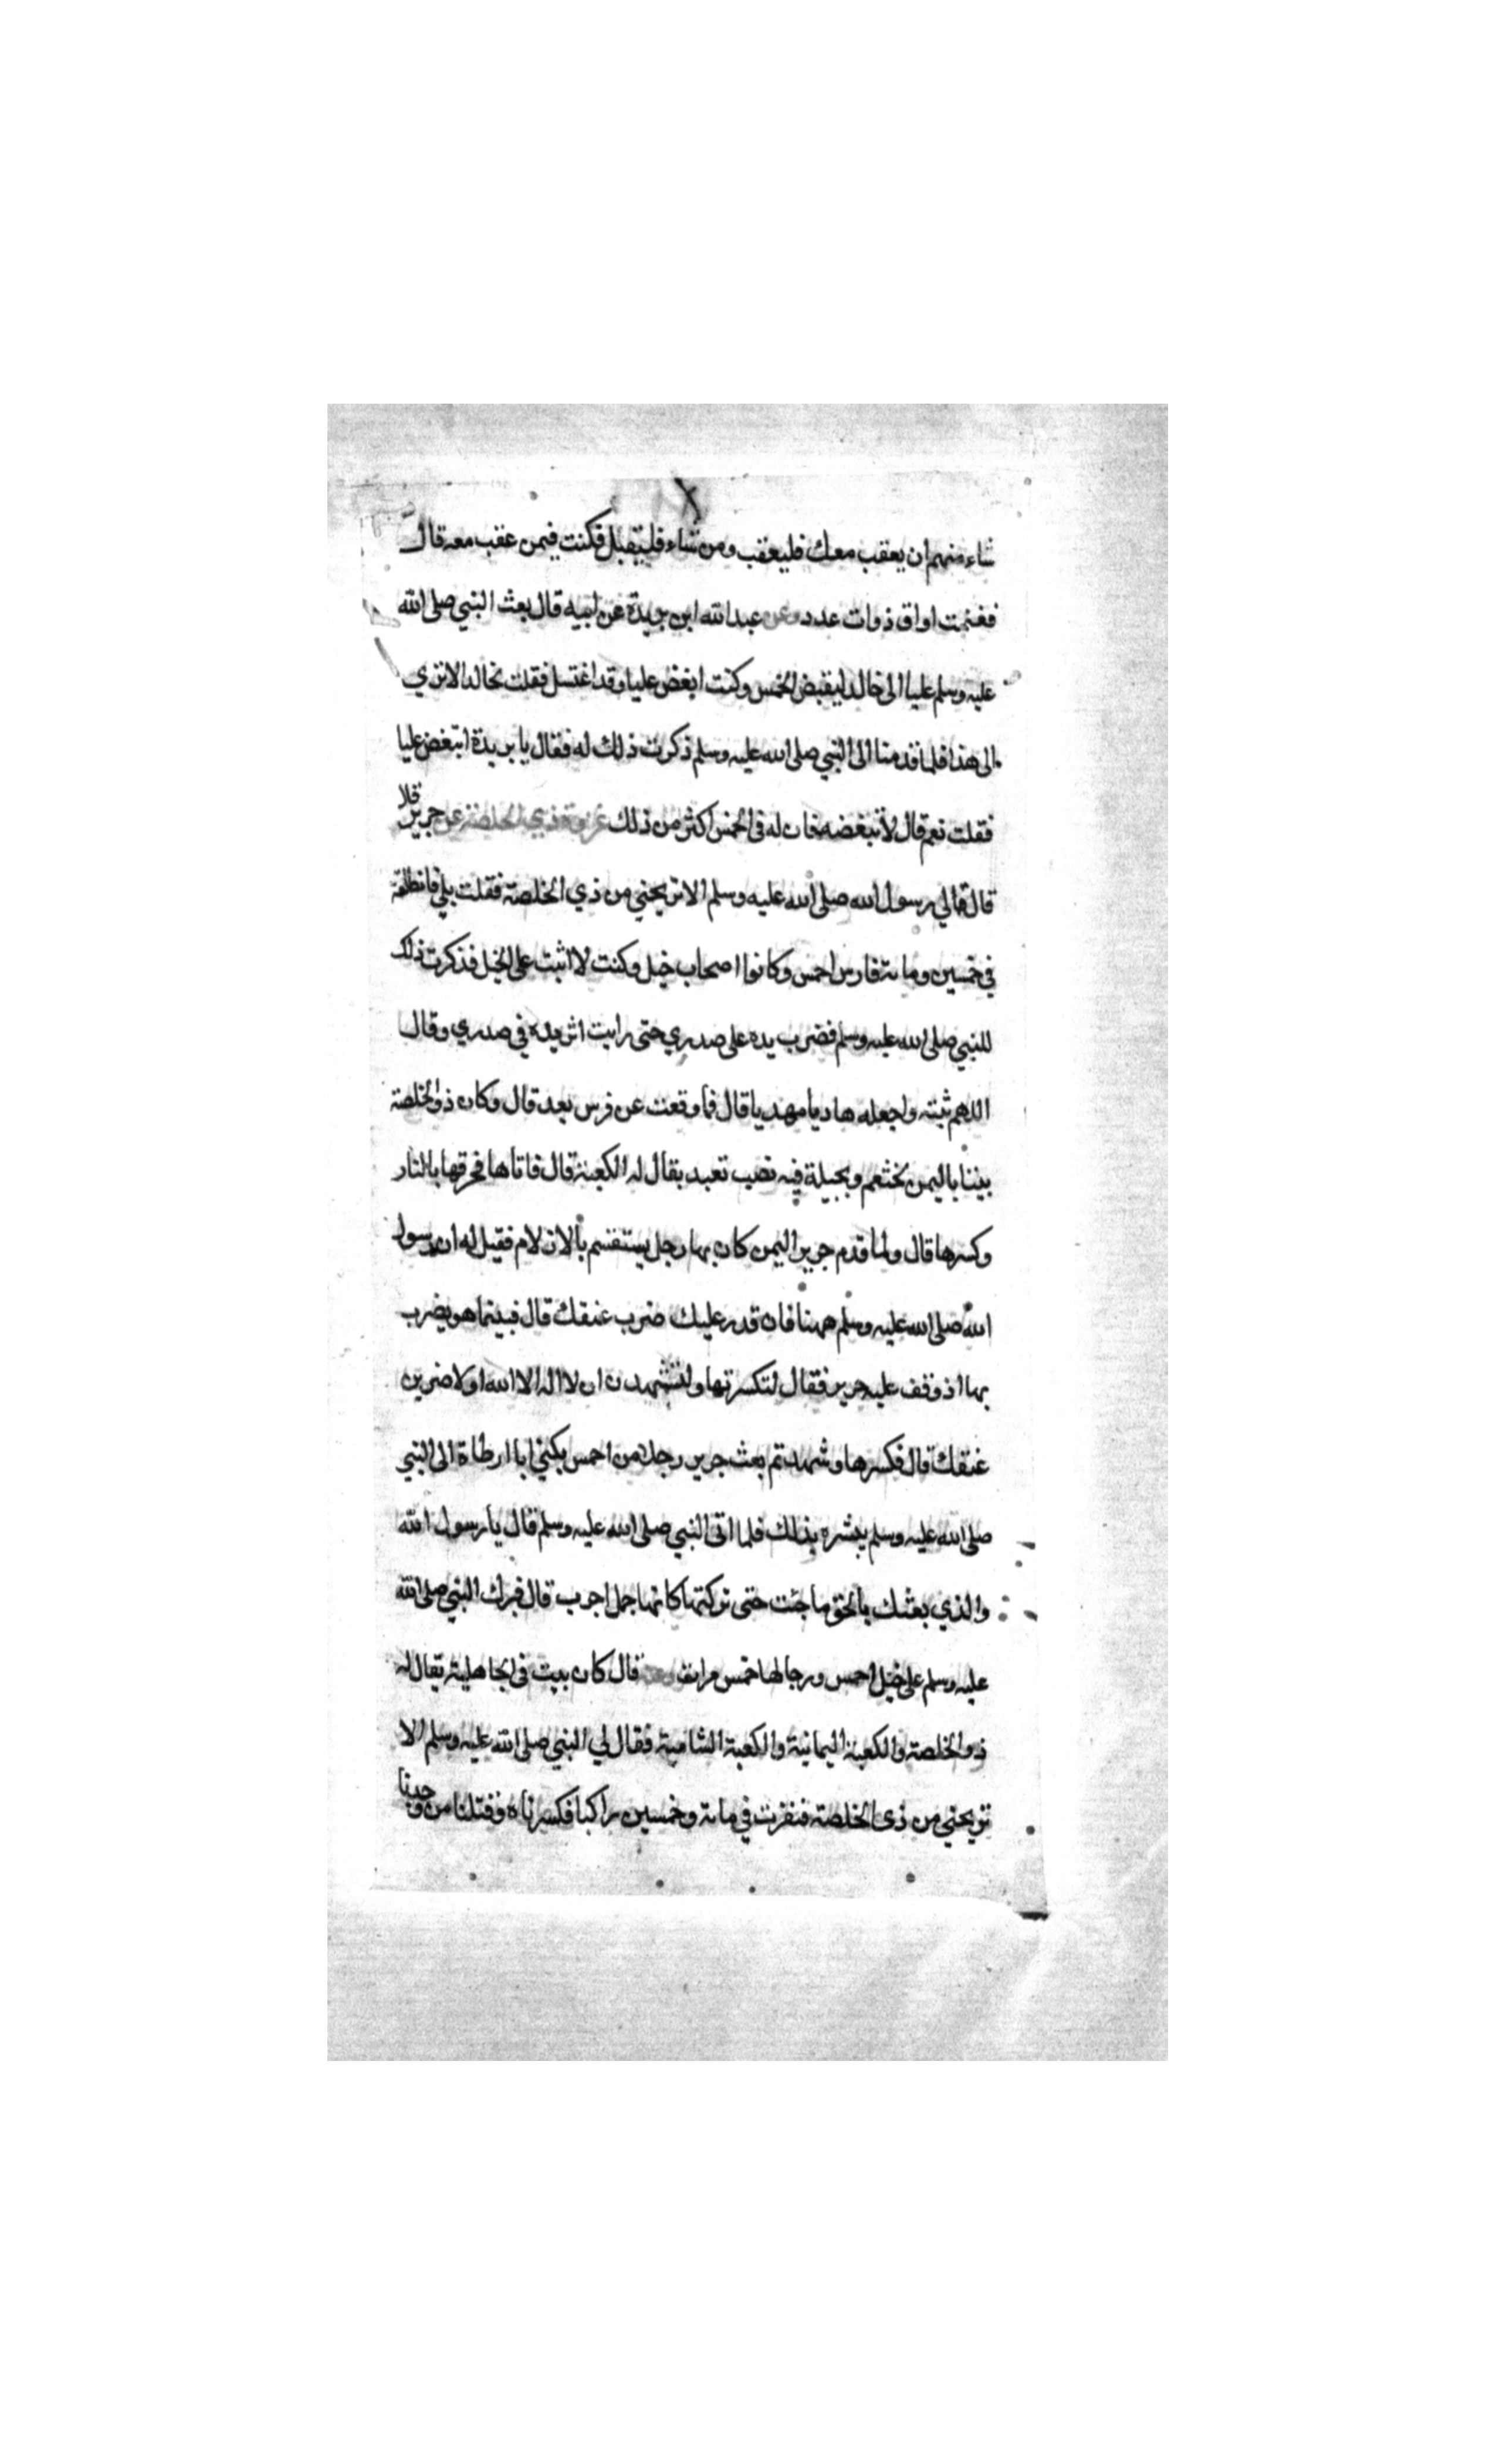 شاء منهم ان يعقب معك فليعقب ومن شاء فليقبل فكنت فيمن عقب معه قال
فغنمت اواق ذوات عدد وعن عبدالله ابن بريدة عن ابيه قال بعث النبي صلى الله
عليه وسلم عليا الى خالد ليقبض الخمس وكنت ابغض عليا وقد اغتسل فقلت لخالد الا تري
الى هذا فلما قدمنا الى النبي صلى الله عليه وسلم ذكرت ذلك له فقال يا بريدة اتبغض عليا
فقلت نعم قال لا تبغضه فان له فى الخمس اكثر من ذلك غزوة ذي الخلصة عن جرير
قال قال لي رسول الله صلى الله عليه وسلم الا تريحني من ذي الخلصة فقلت بلي فانطلقت
في خمسين ومائة فارس من احمس وكانوا اصحاب خيل وكنت لا اثبت على الخيل فذكرت ذلك
للنبي صلى الله عليه وسلم فضرب يده على صدري حتى رايت اثر يده في صدري وقال
اللهم ثبته واجعله هاديا مهديا قال فما وقعت عن فرس بعد قال وكان ذو الخلصة
بيتا باليمن لخثعم وبجيلة فيه نصب تعبد يقال له الكعبة قال فاتاها فحرقها بالنار
وكسرها قال ولما قدم جرير اليمن كان بها رجل يستقسم بالازلام فقيل له ان رسول
الله صلى الله عليه وسلم ههنا فان قدر عليك ضرب عنقك قال فبينما هو يضرب
بها اذ وقف عليه جرير فقال لتكسرنها ولتشهدن ان لا اله الا الله او لاضربن
عنقك قال فكسرها وشهد ثم بعث جرير رجلا من احمس يكني ابا ارطاة الى النبي
صلى الله عليه وسلم يبشره بذلك فلما اتى النبي صلى الله عليه وسلم قال يا رسول الله
والذي بعثك بالحق ما جئت حتى تركتها كانها جمل اجرب قال فبرك النبي صلى الله
عليه وسلم على خيل احمس ورجالها خمس مرات وعنه قال كان بيت فى الجاهلية يقال له
ذو الخلصة والكعبة اليمانية والكعبة الشامية فقال لي النبي صلى الله عليه وسلم الا
تريحني من ذى الخلصة فنفرت في مائة وخمسين راكبا فكسرناه وقتلنا من وجدنا